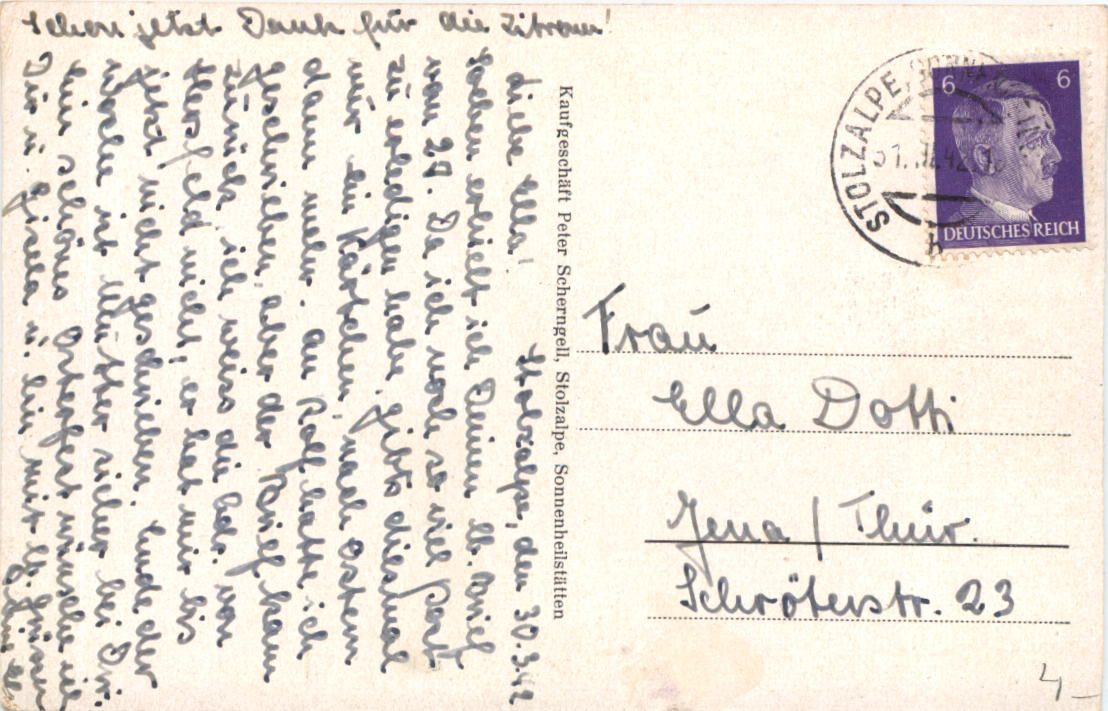 Schon jetzt Dank für die Zitronen!
Stolzalpe, den 30.3.42
Liebe Ella!
Soeben erhielt ich Deinen lb. Brief
vom 27. Da ich noch so viel Post
zu erledigen habe, gibts diesmal
nur ein Kärtchen, nach Ostern
dann mehr. An Rolf hatte ich
geschrieben, aber der Brief kam
zurück, ich weiss die Adr. von
Hersfeld nicht, er hat mir bis
jetzt nicht geschrieben. Ende der
Woche ist Mutter sicher bei Dir.
Ein schönes Osterfest wünsche ich
Dir u. Gisela u. bin mit lb. Grüssen
Kaufgeschäft Peter Scherngell, Stolzalpe, Sonnenheilstätten
STOLZALPE
6 6
DEUTSCHES REICH
Frau
Ella Dotti
Jena / Thür.
Schröterstr. 23
4,–